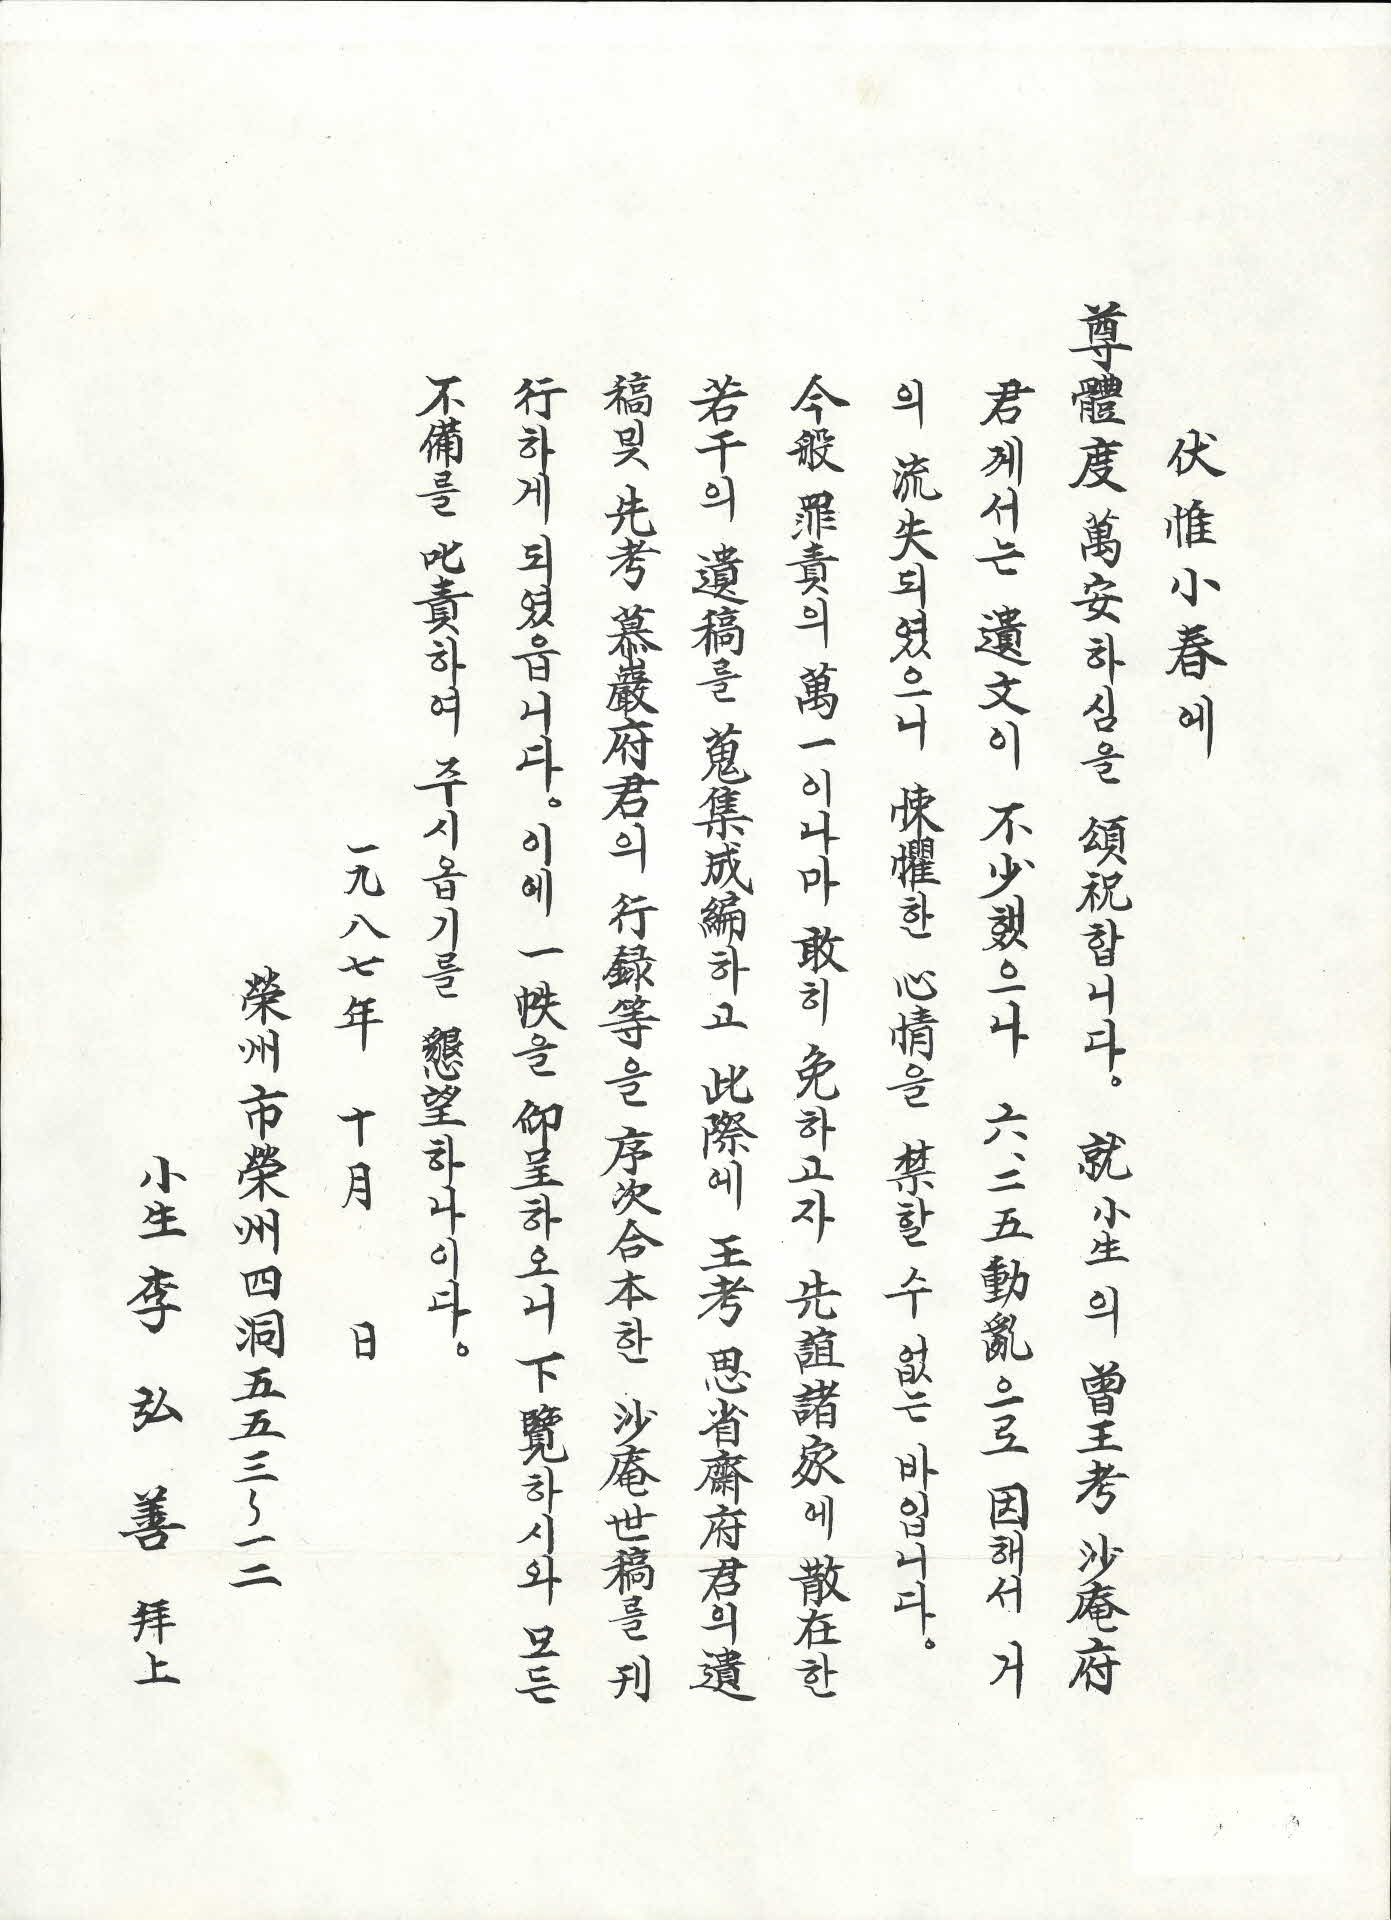 伏惟小春에
尊體度 萬安하심을 頌祝합니다。 就 小生의 曾王考 沙庵府
君께서는 遺文이 不少했으나 六、二五動亂으로 因해서 거
의 流失되였으니 悚懼한 心情을 禁할 수 없는 바입니다。
今般 罪責의 萬一이나마 敢히 免하고자 先誼諸家에 散在한
若干의 遺稿를 蒐集成編하고 此際에 王考 思省齋府君의 遺
稿및 先考 慕巖府君의 行録等을 序次合本한 沙庵世稿를 刊
行하게 되였읍니다。이에 一帙을 仰呈하오니 下覽하시와 모든
不備를 叱責하여 주시옵기를 懇望하나이다。
一九八七年 十月 日
榮州市榮州四洞五五三~一二
小生 李弘善 拜上